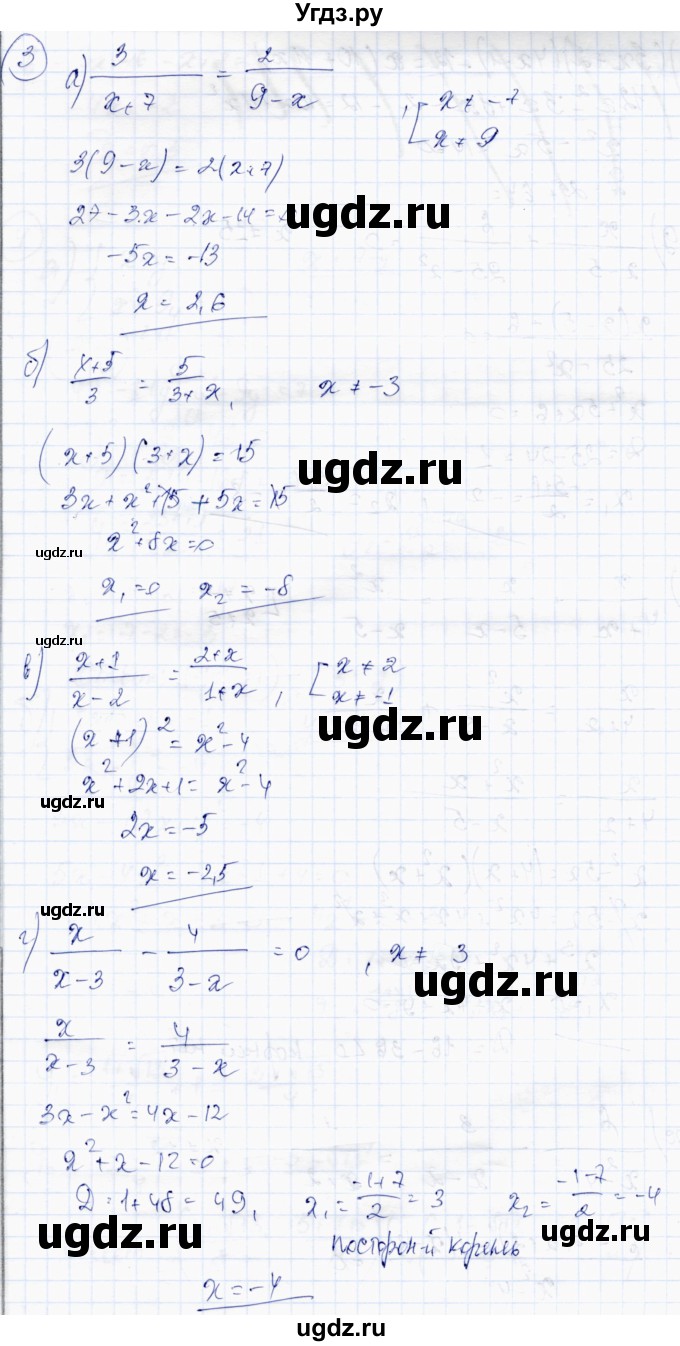 Угдз.ру
3
а) 3/(x+7) = 2/(9-x) , [x ≠ -7
x ≠ 9
3(9-x) = 2(x+7)
27-3x-2x-14=
ugdz.ru
-5x = -13
x = 2,6
б) (x+5)/3 = 5/(3+x), x ≠ -3
(x+5)(3+x) = 15
ugdz.ru
3x+x²+15+5x=15
ugdz.ru
x²+8x=0
x₁=0 x₂=-8
ugdz.ru
в) (x+1)/(x-2) = (2+x)/(1+x) , [x ≠ 2
x ≠ -1
(x+1)² = x²-4
ugdz.ru
x²+2x+1= x²-4
ugdz.ru
2x = -5
x = -2,5
ugdz.ru
г) x/(x-3) - 4/(3-x) = 0 , x ≠ 3
ugdz.ru
x/(x-3) = 4/(3-x)
3x-x²=4x-12
x²+x-12=0
D=1+48=49, x₁=(-1+7)/2=3 x₂=(-1-7)/2=-4
ugdz.ru
ugdz.ru
посторон-й корень
x=-4
ugdz.ru